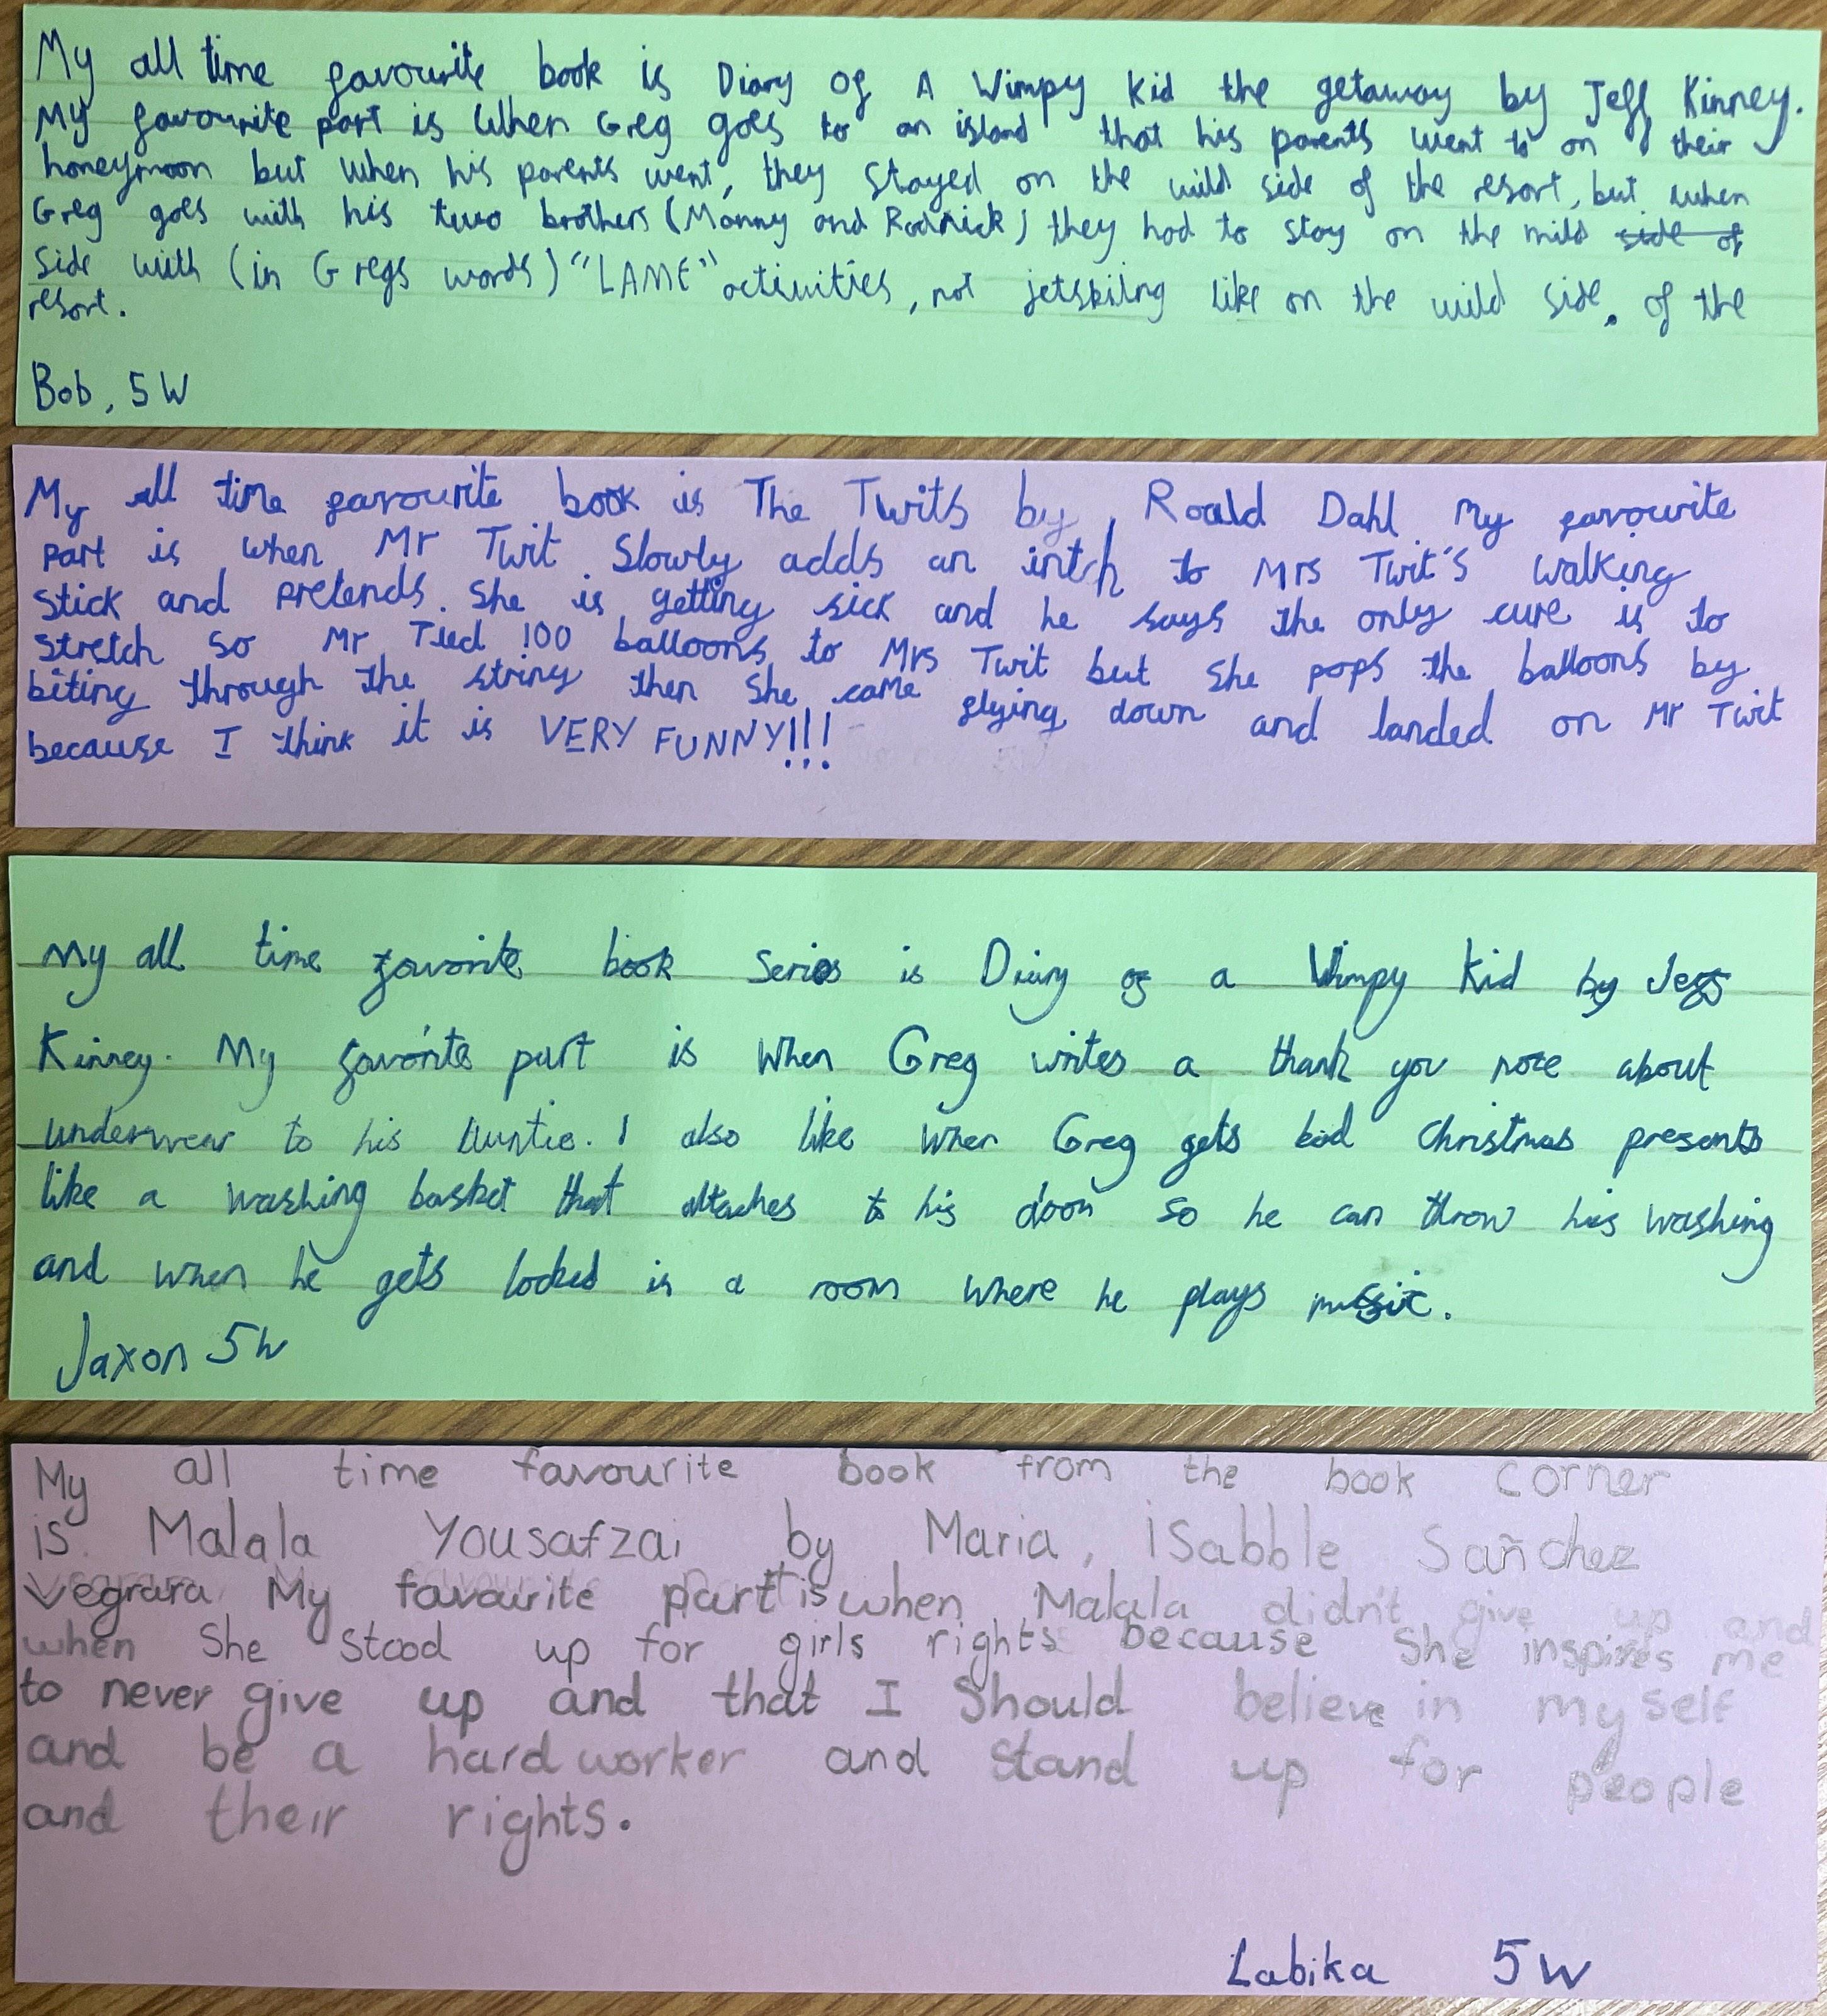 My all time favourite book is Diary Of A Wimpy Kid the getaway by Jeff Kinney.
My favourite part is when Greg goes to an island that his parents went to on their
honeymoon but when his parents went, they stayed on the wild side of the resort, but when
Greg goes with his two brothers (Manny and Rodrick) they had to stay on the mild side of
Side with (in Gregs words) "LAME" activities, not jetskiing like on the wild side. of the
resort.
Bob, 5W
My all time favourite book is The Twits by Roald Dahl My favourite
part is when Mr Twit Slowly adds an intch to Mrs Twit's walking
stick and pretends. She is getting sick and he says the only cure is to
stretch so Mr Tied 100 balloons to Mrs Twit but she pops the balloons by
biting through the string then she came flying down and landed on Mr Twit
because I think it is VERY FUNNY!!!
My all time favorite book Series is Diary of a Wimpy Kid by Jeff
Kinney. My favorite part is when Greg writes a thank you note about
underwear to his Auntie. I also like when Greg gets bad Christmas presents
like a washing basket that attaches to his door so he can throw his washing
and when he gets locked is a room where he plays music.
Jaxon 5W
My all time favourite book from the book corner
is Malala Yousafzai by Maria, iSabble Sañchez
Vegrara My favourite part is when Malala didn't give up and
when She stood up for girls rights because She inspires me
to never give up and that I Should believe in my self
and be a hard worker and stand up for people
and their rights.
Labika 5W